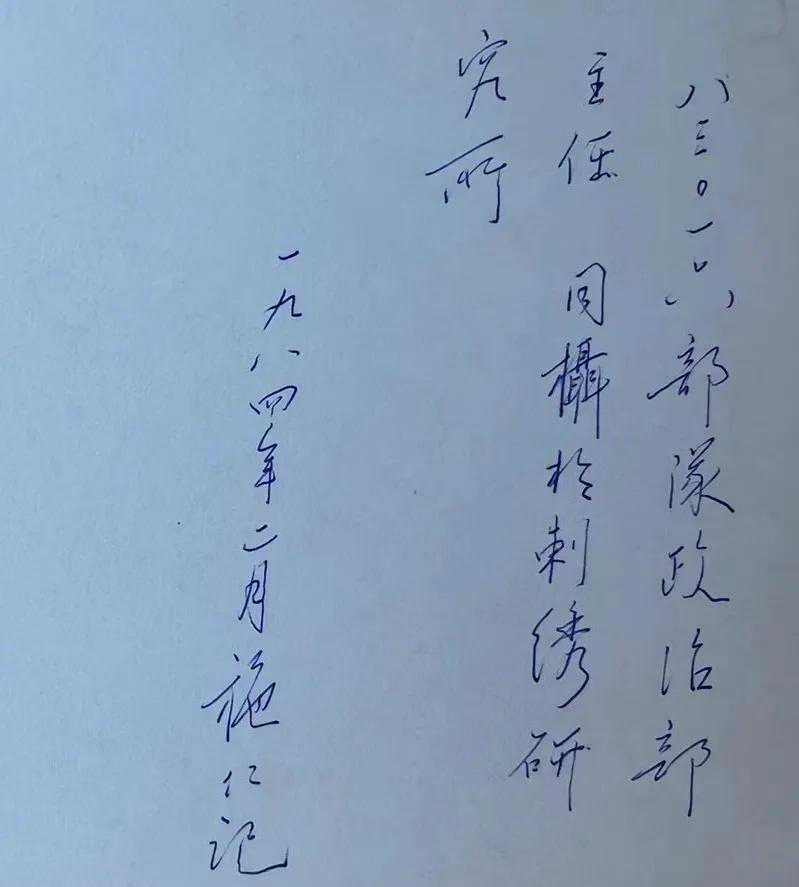 八三〇一六部隊政治部
主任 同攝於刺绣研
究所
一九八四年二月施仁记